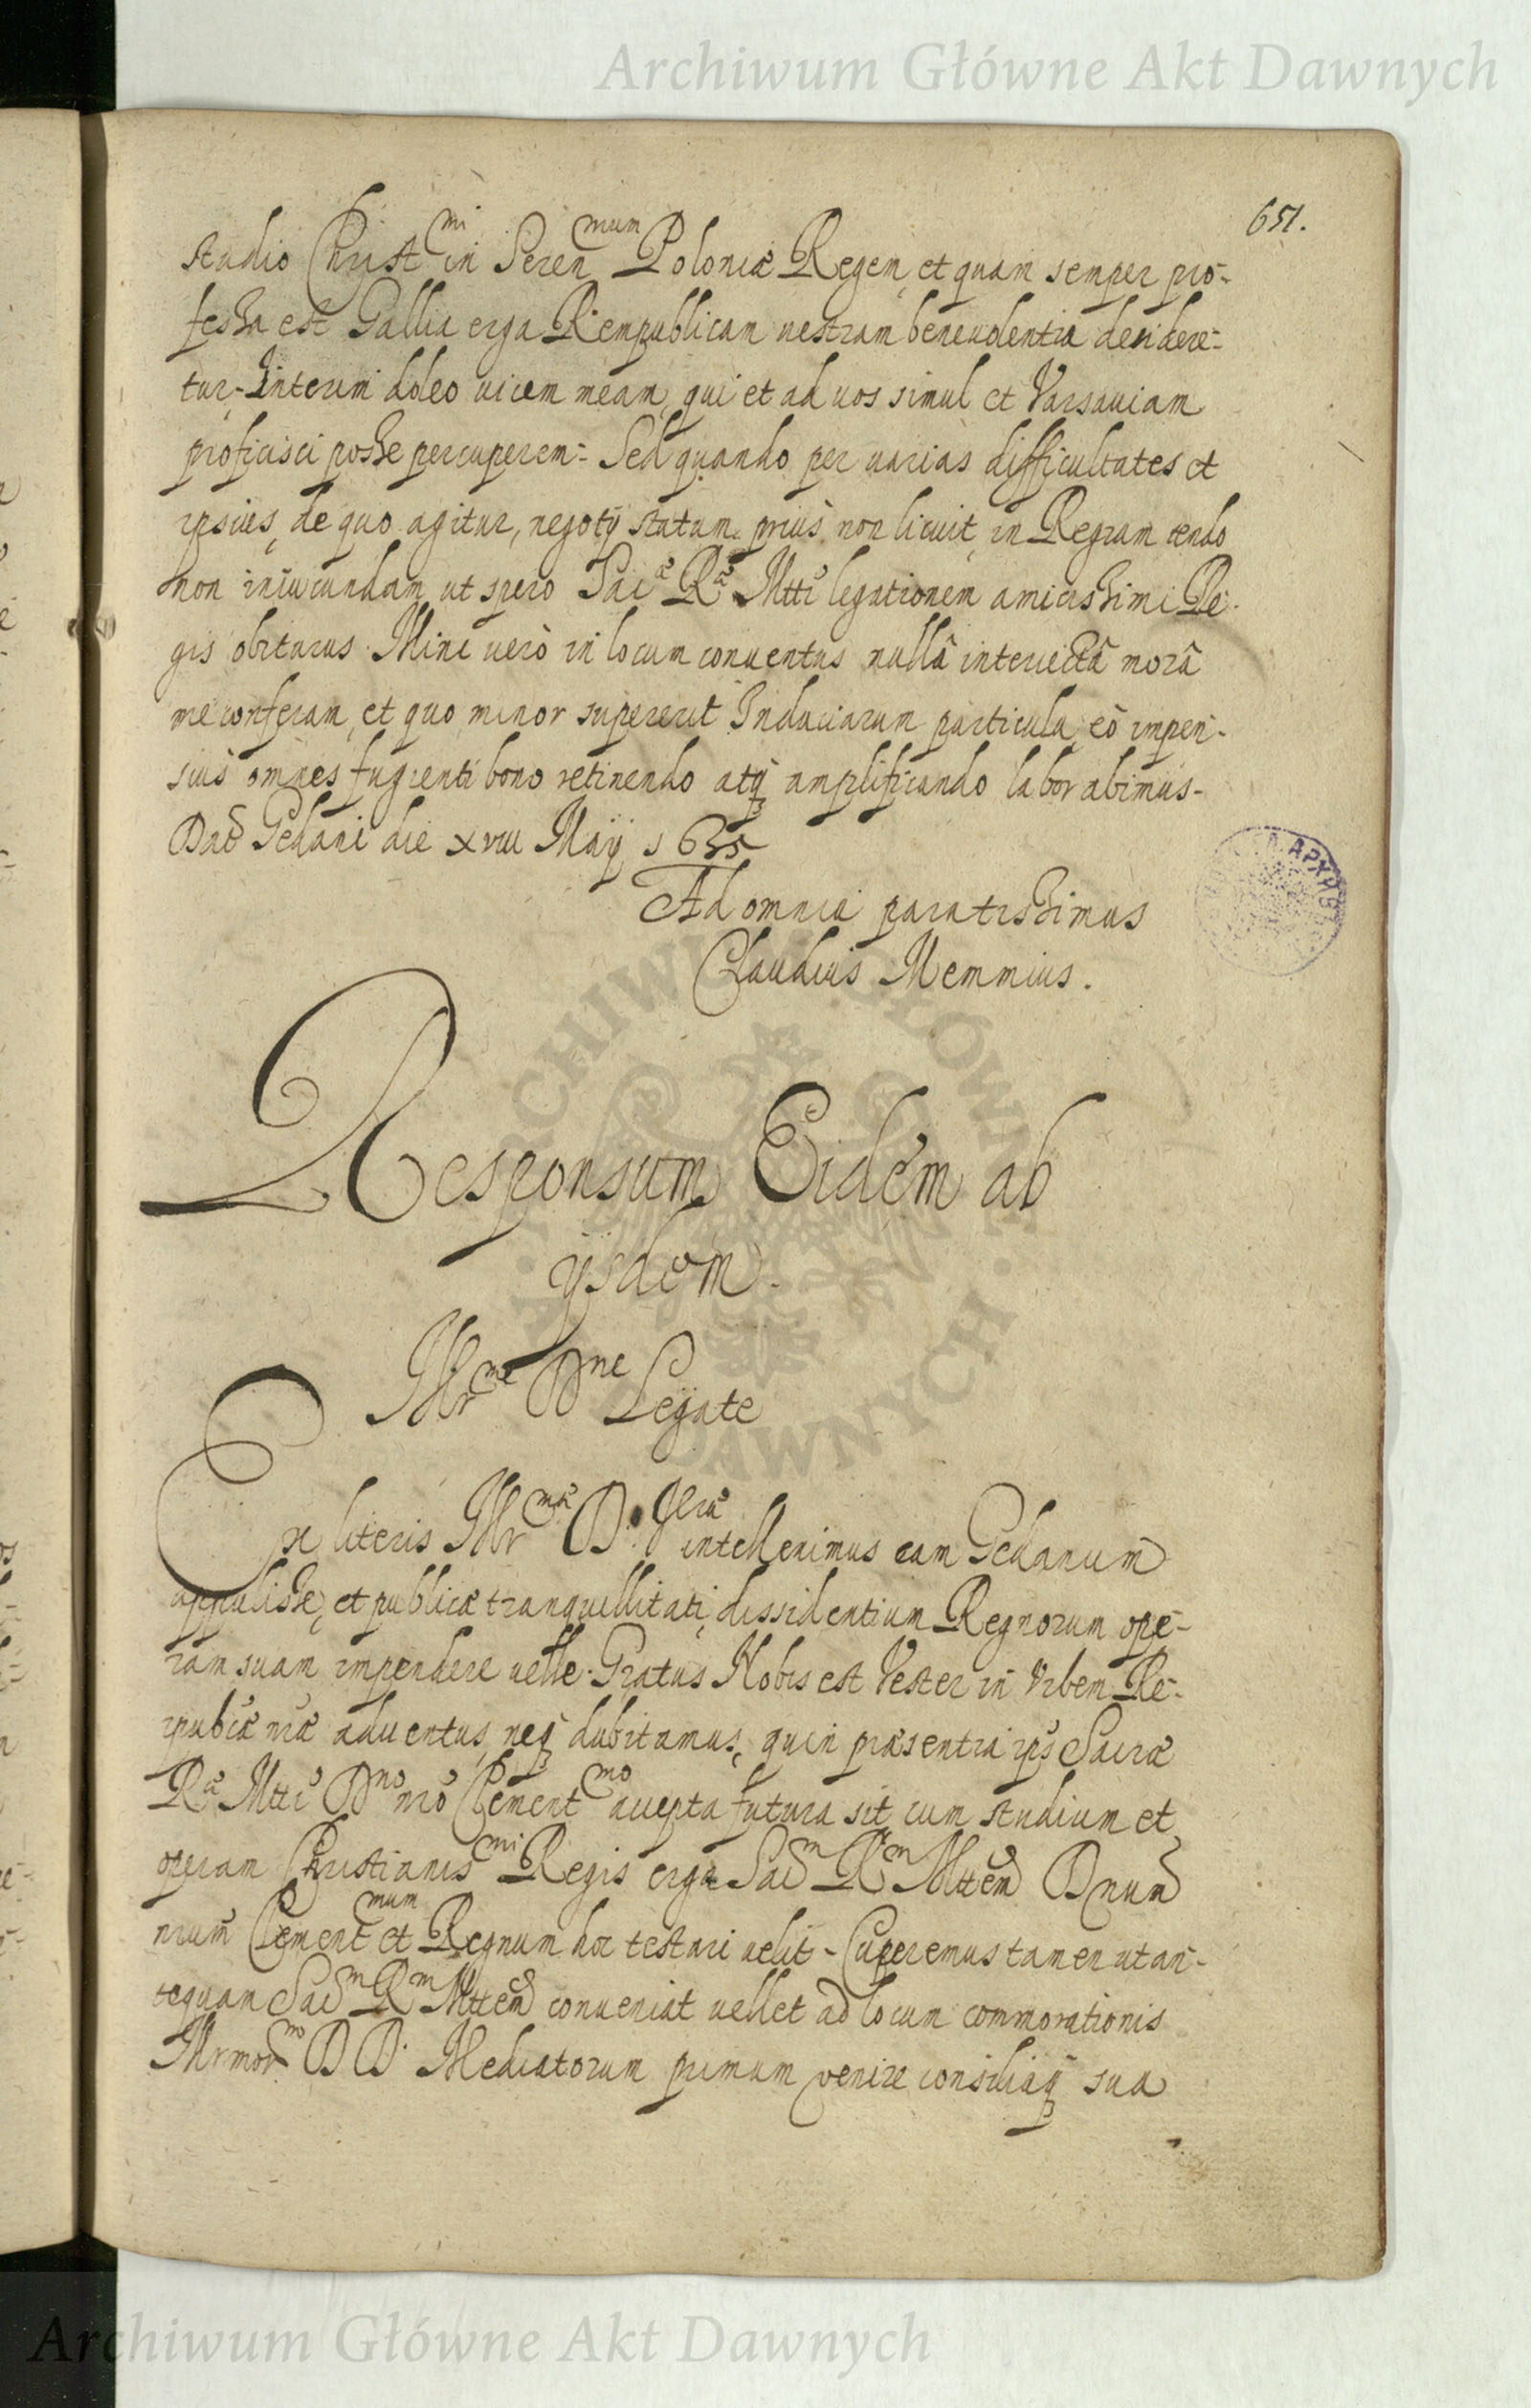 Archiwum Główne Akt Dawnych
651.
studio Christ^mi in Seren^mum Poloniæ Regem, et quam semper pro-
fessa est Gallia erga Rempublicam vestram benevolentia desidere-
tur. Interim doleo vicem meam, qui et ad vos simul et Varsaviam
proficisci posse percuperem. Sed quando per varias difficultates et
ipsius, de quo agitur, negotÿ statum prius non licuit, in Regiam tendo
non iniucundam ut spero Sac^æ R^æ Mtti legationem amicissimi Re-
gis obiturus. Mini verò in locum conventus nullâ interiectâ morâ
me conferam, et quo minor supererit Induciarum particula, eò impen-
siùs omnes fugienti bono retinendo atq₃ amplificando laborabimus.
Dat Gedani die xviii Maÿ 1635
Ad omnia paratissimus
Claudius Memmius.
Responsum Eidem ab
ijsdem.
Illr^me D^ne Legate
Ex literis Illr^mæ D. V^ræ intelleximus eam Gedanum
appulisse, et publicæ tranquillitati dissidentium Regnorum ope-
ram suam impendere velle. Gratus Nobis est Vester in Urbem Re-
ipubcæ nræ adventus, neq₃ dubitamus, quin præsentia ips Sacræ
R^æ Mtti D^no nro Clement^mo accepta futura sit cum studium et
operam Christianis^mi Regis erga Sac^m R^m Mttem Dnum
nrum Clement^mum et Regnum hoc testari velit. Cuperemus tamen ut an-
tequam Sac^m R^m Mttem conveniat vellet ad locum commorationis
Illrmor^mo D D. Mediatorum primum venire consiliaq₃ sua
ARCHIWUM GŁÓWNE AKT DAWNYCH
Archiwum Główne Akt Dawnych